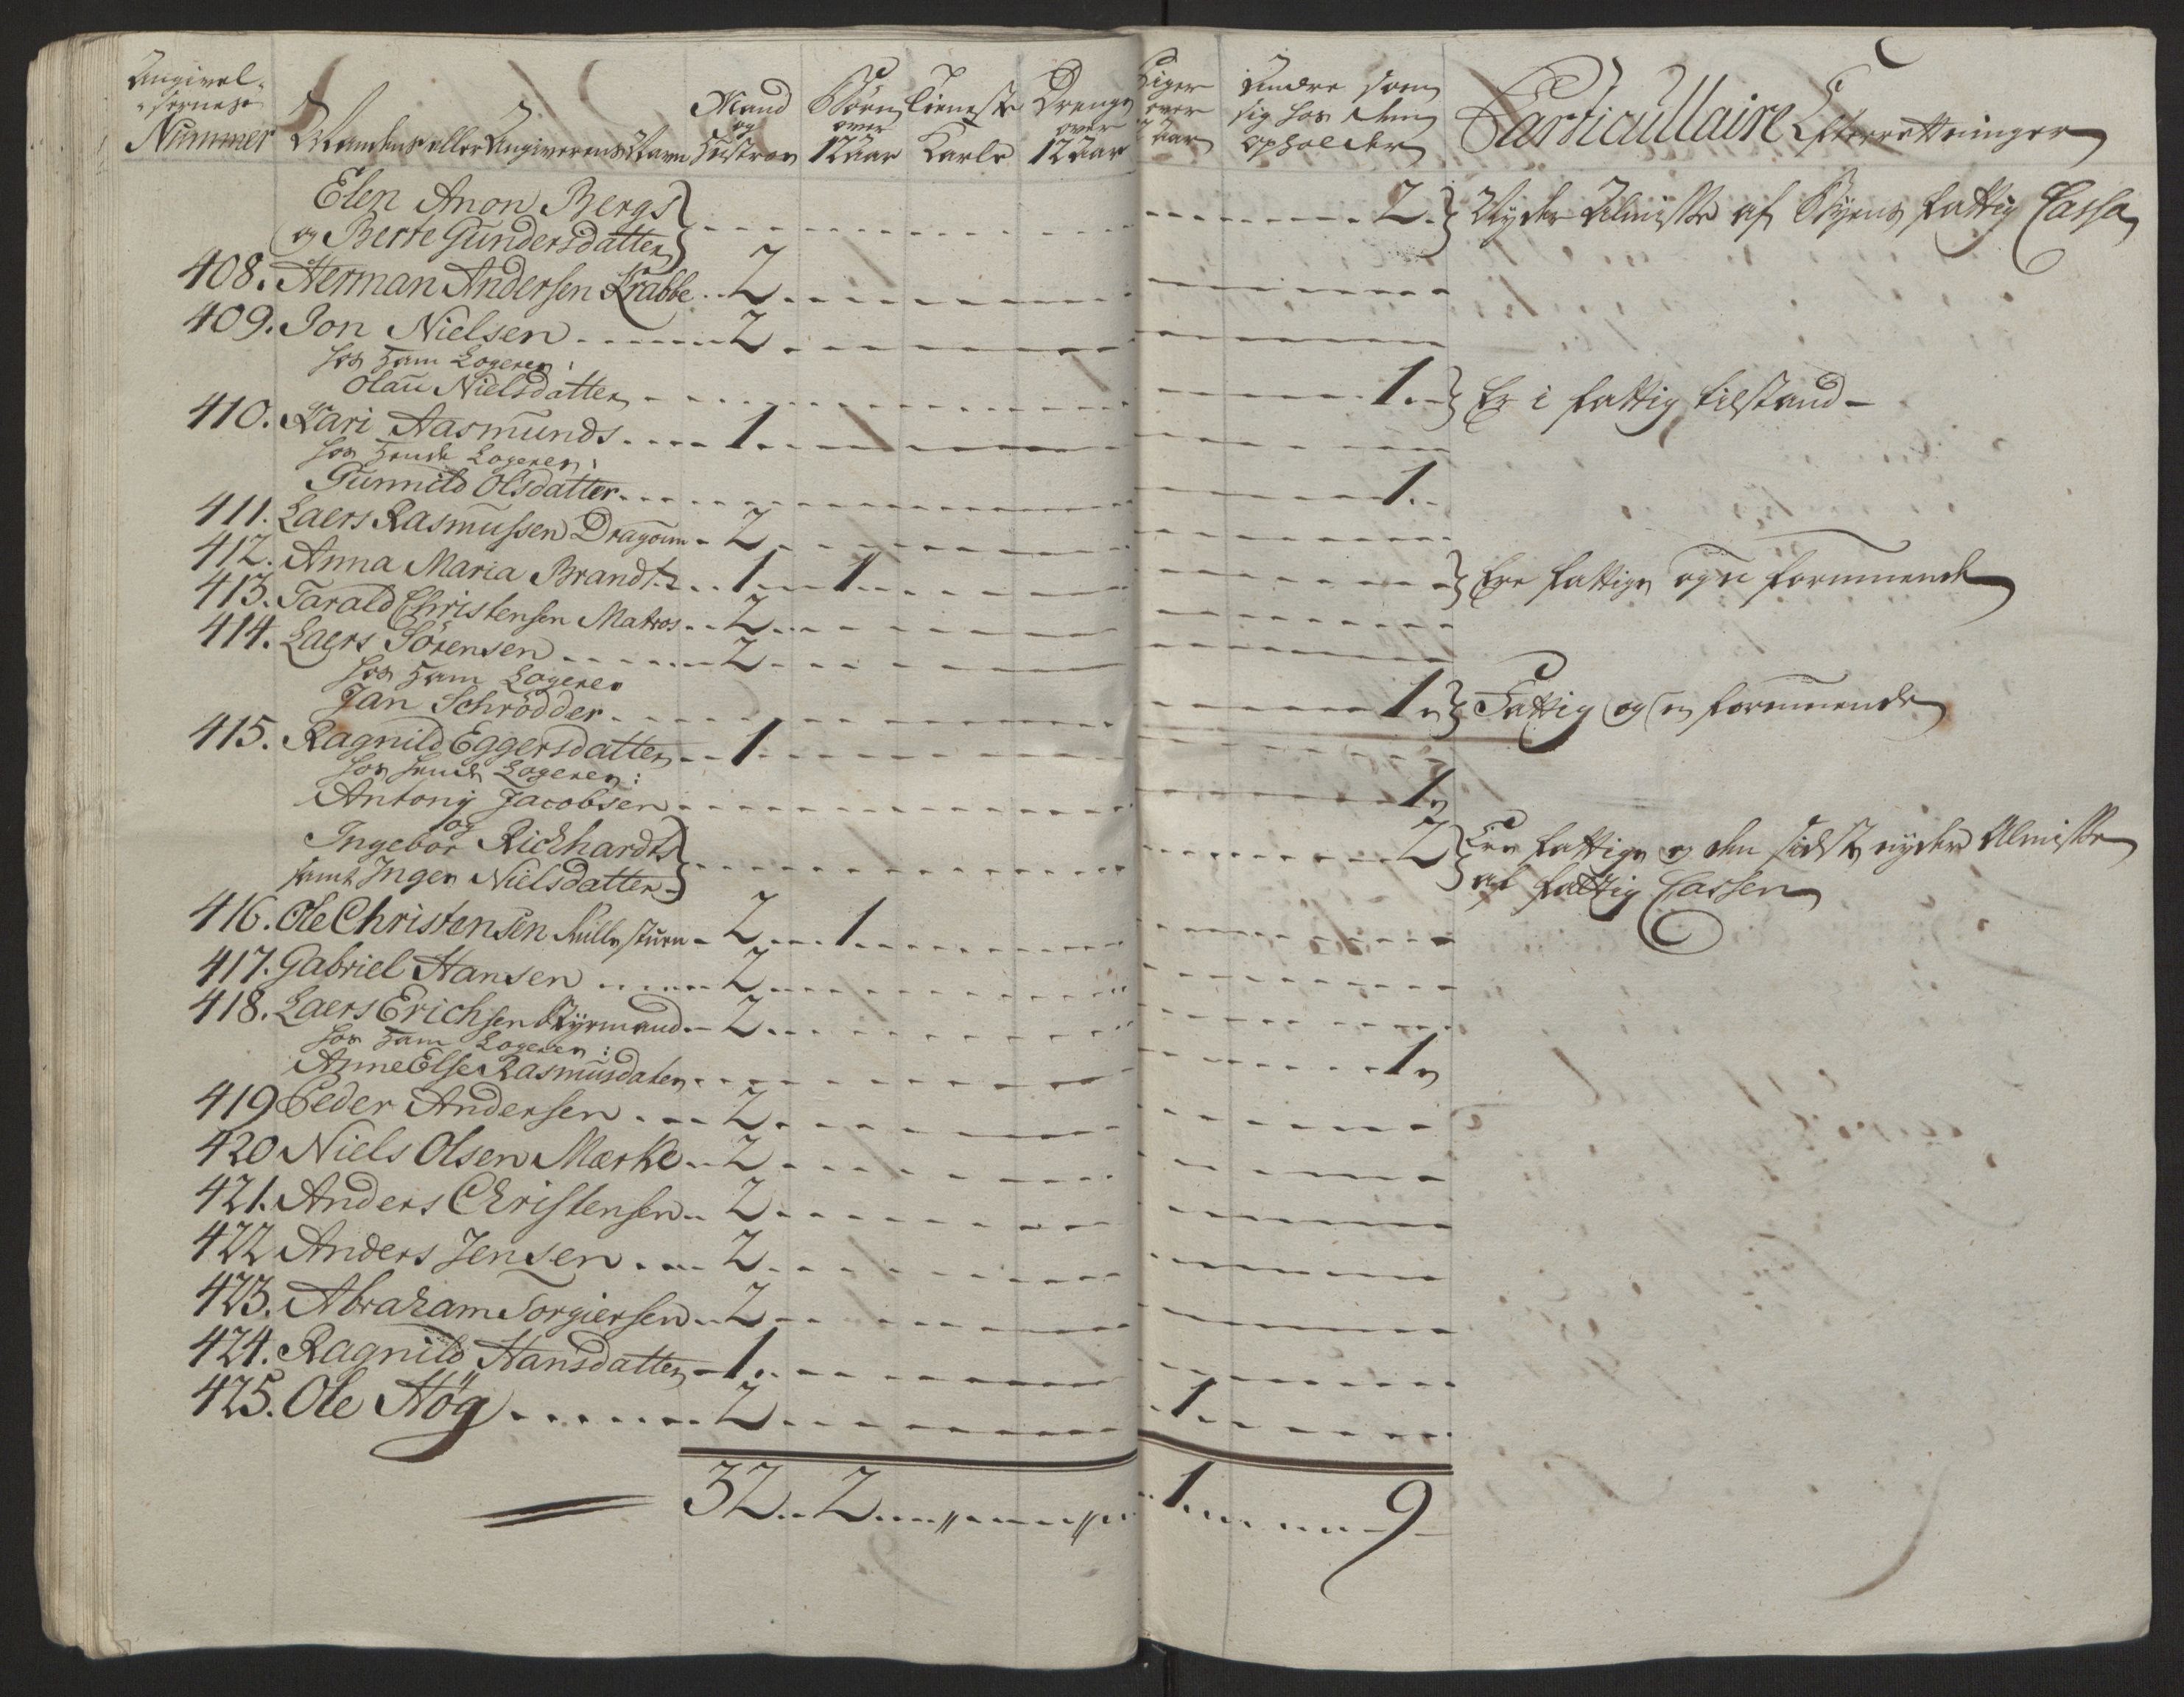 Angivel-
-sernes
Nummer
Mandens eller Angiverens Navn
Mand og Hustroe
Børn over 12 Aar
Tieneste Karle
Drenge over 12 Aar
Piger over 12 Aar
Andre som sig hos dem opholder
Particullaire Efterrettninger
Elen Anon Bergs
og Berte Gundersdatter } 2. } Nyder Almisse af Byens fattig Cassa
408. Herman Andersen Krabbe 2
409. Jon Nielsen 2
hos ham Logerer:
Olau Nielsdatter 1. } Er i fattig tilstand
410. Kari Aasmunds 1
hos hende Logerer:
Gunnild Olsdatter 1.
411. Laers Rasmussen Dragoun 2
412. Anna Maria Brandt 1 1 } Ere fattige og u formuende
413. Tarald Christensen Matros 2
414. Laers Sörensen 2
hos ham Logerer
Jan Schrödder 1 } Fattig og u formuende
415. Ragnild Eggersdatter 1
hos hende Logerer:
Antony Jacobsen 1
og
Ingebor Richhardts 2 } Ere fattige og den sidste nyder Almisse
samt Inger Nielsdatter } af fattig Cassen
416. Ole Christensen 2 1
417. Gabriel Hansen 2
418. Laers Erichsen Styrmand 2
hos ham Logerer:
Anne Else Rasmusdater 1
419 Peder Andersen 2
420 Niels Olsen Mærke 2
421. Anders Christensen 2
422 Anders Jensen 2
423. Abraham Torgiersen 2
424. Ragnild Hansdatter 1
425. Ole Hög 2 1
32 2 " " 1 9